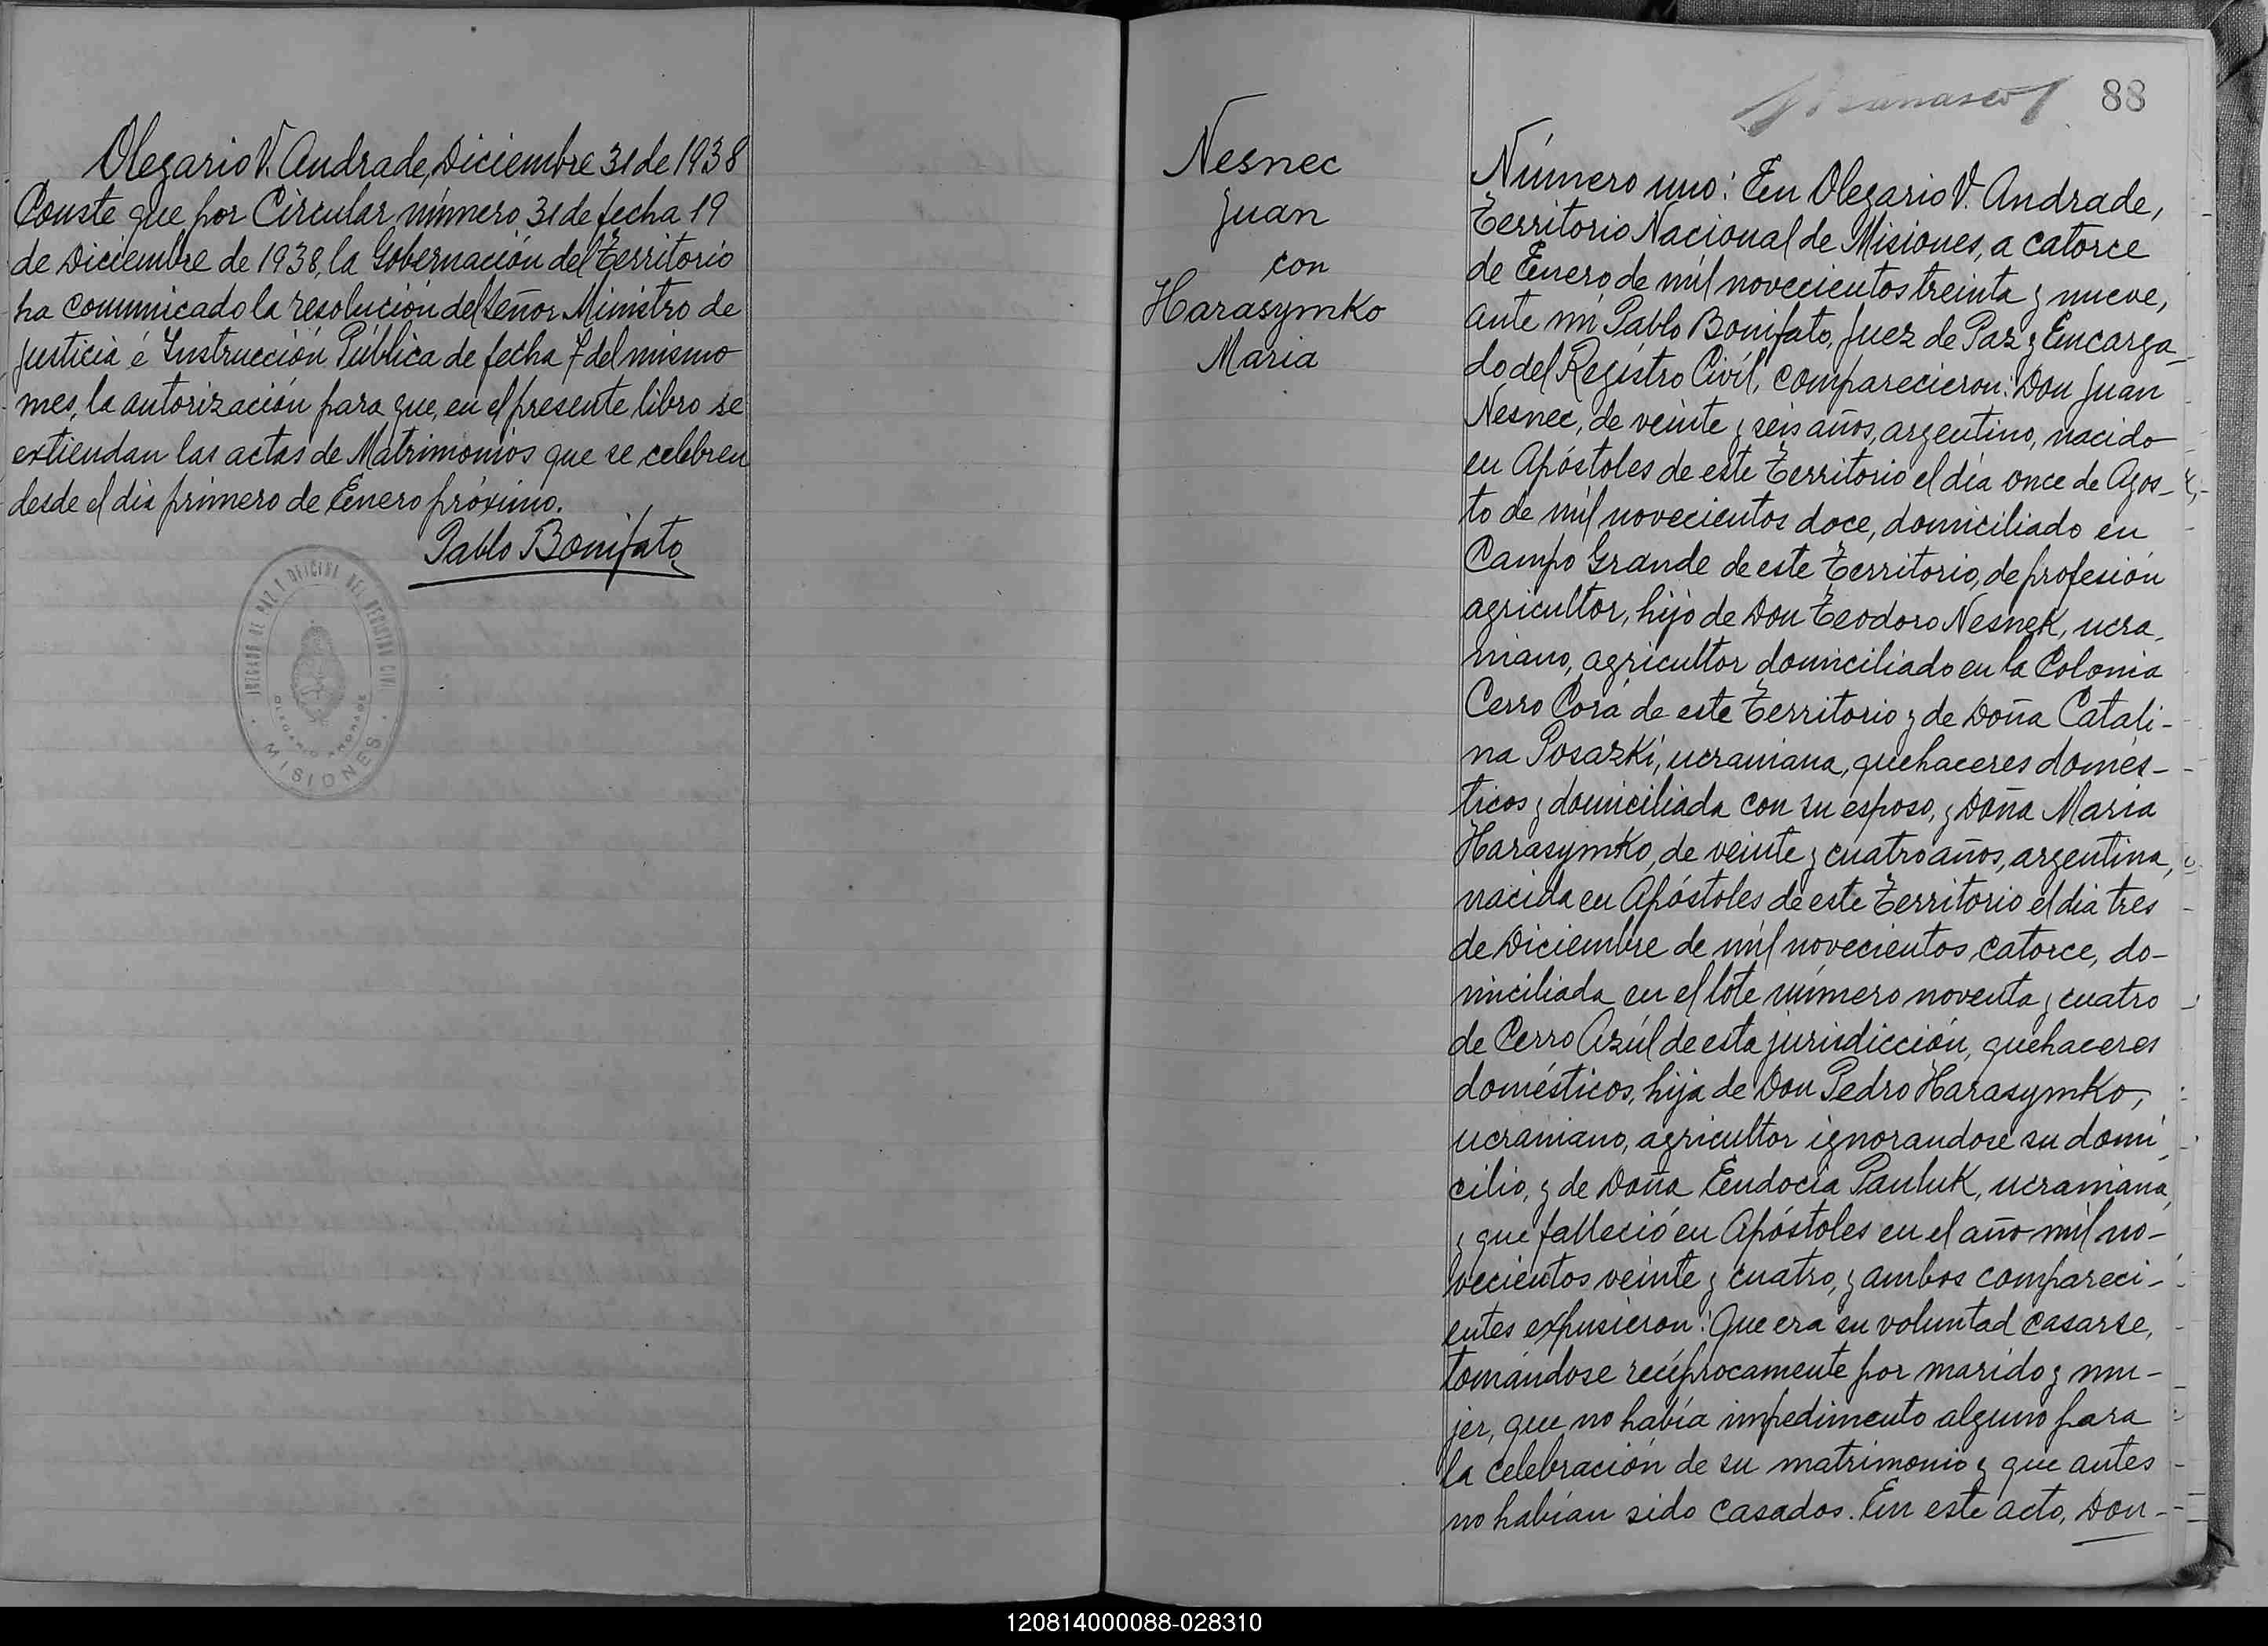 Olegario V. Andrade, Diciembre 31 de 1938
Conste que por Circular número 31 de fecha 19
de Diciembre de 1938, la Gobernación del Territorio
ha comunicado la resolución del Señor Ministro de
Justicia é Instrucción Pública de fecha 7 del mismo
mes, la autorización para que, en el presente libro se
extiendan las actas de Matrimonios que se celebren
desde el día primero de Enero próximo.
Pablo Bonifato
JUZGADO DE PAZ Y OFICINA DEL REGISTRO CIVIL
OLEGARIO ANDRADE
MISIONES
88
Nesnec
Juan
con
Harasymko
Maria
Número uno: En Olegario V. Andrade,
Territorio Nacional de Misiones, a catorce
de Enero de mil novecientos treinta y nueve,
ante mí Pablo Bonifato, Juez de Paz y Encarga-
do del Registro Civil, comparecieron: Don Juan
Nesnec, de veinte y seis años, argentino, nacido
en Apóstoles de este Territorio el día once de Agos-
to de mil novecientos doce, domiciliado en
Campo Grande de este Territorio, de profesión
agricultor, hijo de Don Teodoro Nesnek, ucra-
niano, agricultor domiciliado en la Colonia
Cerro Corá de este Territorio y de Doña Catali-
na Posazki, ucraniana, quehaceres domés-
ticos y domiciliada con su esposo, y Doña Maria
Harasymko, de veinte y cuatro años, argentina,
nacida en Apóstoles de este Territorio el dia tres
de Diciembre de mil novecientos catorce, do-
miciliada en el lote número noventa y cuatro
de Cerro Azúl de esta jurisdicción, quehaceres
domésticos, hija de Don Pedro Harasymko,
ucraniano, agricultor ignorandose su domi-
cilio, y de Doña Eudocia Pauluk, ucraniana,
y que falleció en Apóstoles en el año mil no-
vecientos veinte y cuatro, y ambos compareci-
entes expusieron: Que era su voluntad casarse,
tomándose recíprocamente por marido y mu-
jer, que no había impedimento alguno para
la celebración de su matrimonio y que antes
no habían sido casados. En este acto, Don-
120814000088-028310